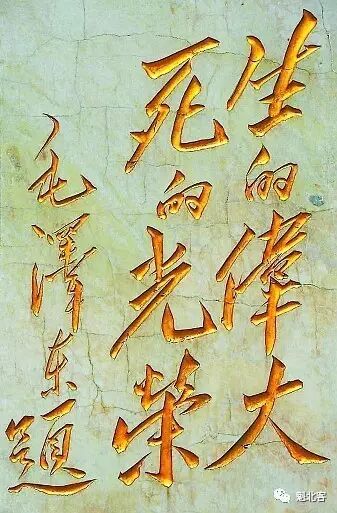 生的偉大
死的光荣
毛澤东题
魁北客